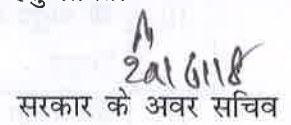 29/6/18
सरकार के अवर सचिव